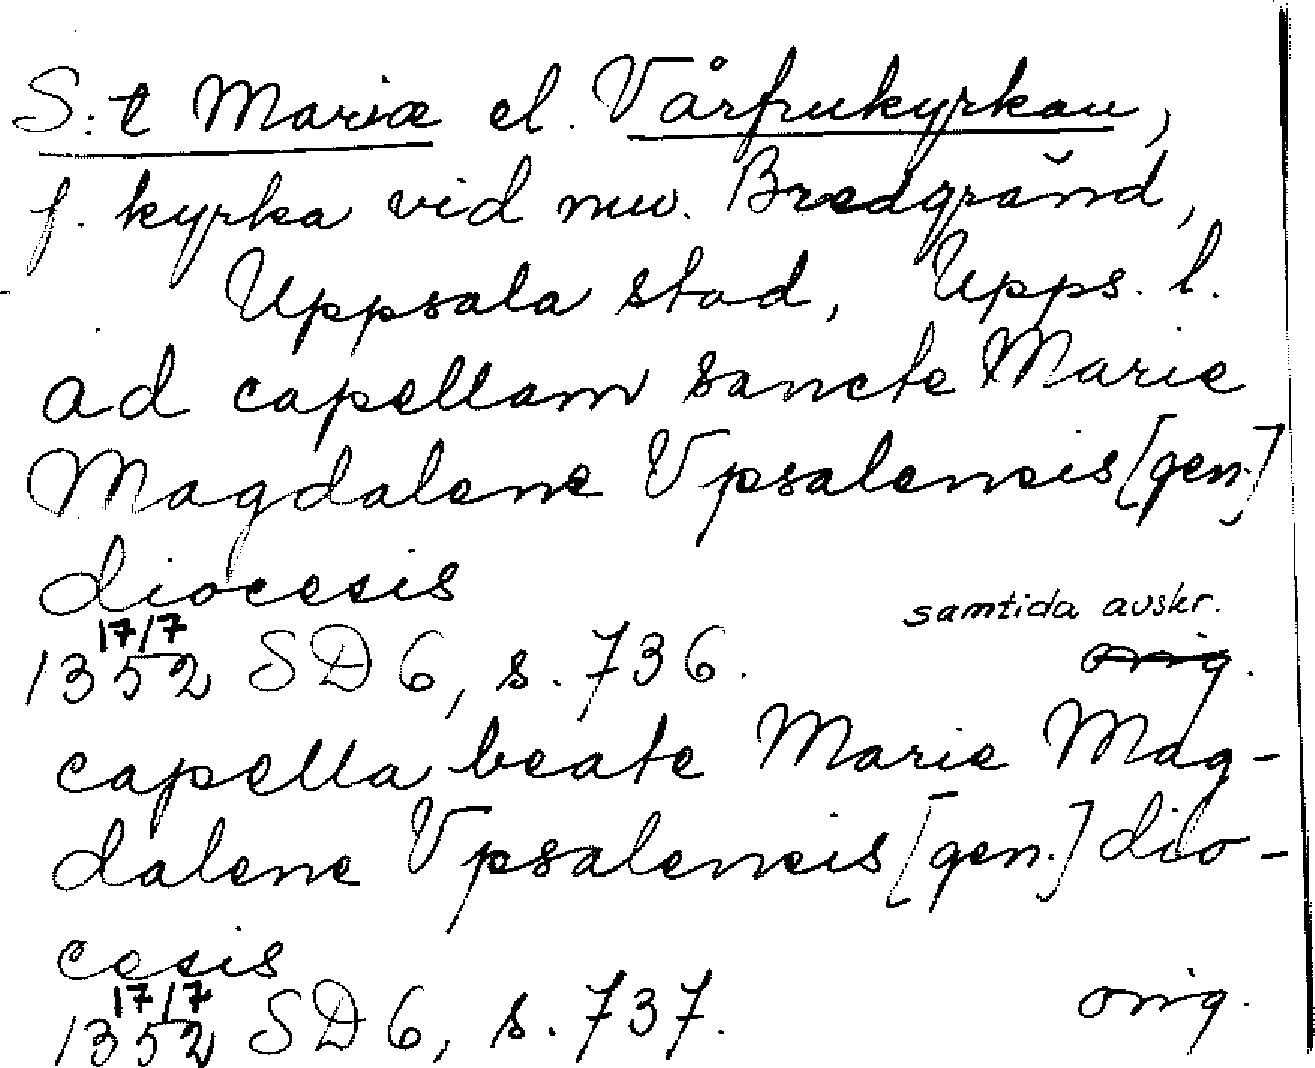 S:t Mariæ el. Vårfrukyrkan,
f. kyrka vid nuv. Bredgränd,
Uppsala stad, Upps. l.
ad capellam sancte Marie
Magdalene Vpsalensis [gen.]
diocesis
samtida avskr.
17/7
1352 SD 6, s. 736. orig.
capella beate Marie Mag-
dalene Vpsalensis [gen.] dio-
cesis
17/7
1352 SD 6, s. 737. orig.